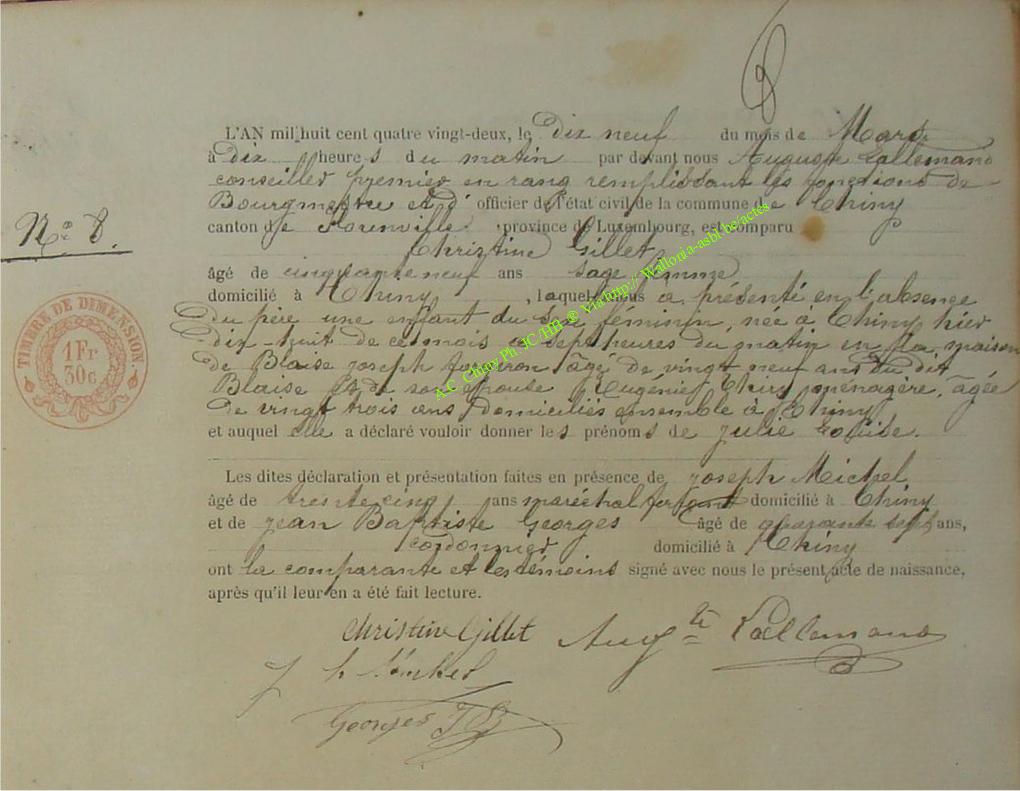 8
L'AN mil huit cent quatre vingt-deux, le Dix neuf du mois de Mars
à Dix heures du matin par devant nous Auguste Lallemand
conseiller premier en rang remplissant les fonctions de
Bourgmestre et d' officier de l'état civil de la commune de Chiny
canton de Florenville province de Luxembourg, est comparu
Christine Gillet
âgé de cinquante neuf ans sage femme
domicilié à Chiny, laquel nous a présenté en l'absence
Du père une enfant du sexe féminin, née à Chiny hier
Dix huit de ce mois à sept heures du matin en sa maison
de Blaise Joseph âgé de vingt neuf ans du dit
Blaise et de son épouse Eugénie Thiry ménagère, âgée
de vingt trois ans domiciliés ensemble à Chiny
et auquel elle a déclaré vouloir donner les prénoms de Julie Louise.
Les dites déclaration et présentation faites en présence de Joseph Michel
âgé de trente cinq ans maréchal ferrant domicilié à Chiny
et de Jean Baptiste Georges âgé de quarante sept ans,
cordonnier domicilié à Chiny
ont la comparante et les témoins signé avec nous le présent acte de naissance,
après qu'il leur en a été fait lecture.
Christine Gillet Aug te Lallemand
J h Michel
Georges J B
N° 8.
TIMBRE DE DIMENSION.
1 Fr
30 c
A.C. Chiny Ph. JC /HB ® Via http:// Wallonia-asbl.be/actes